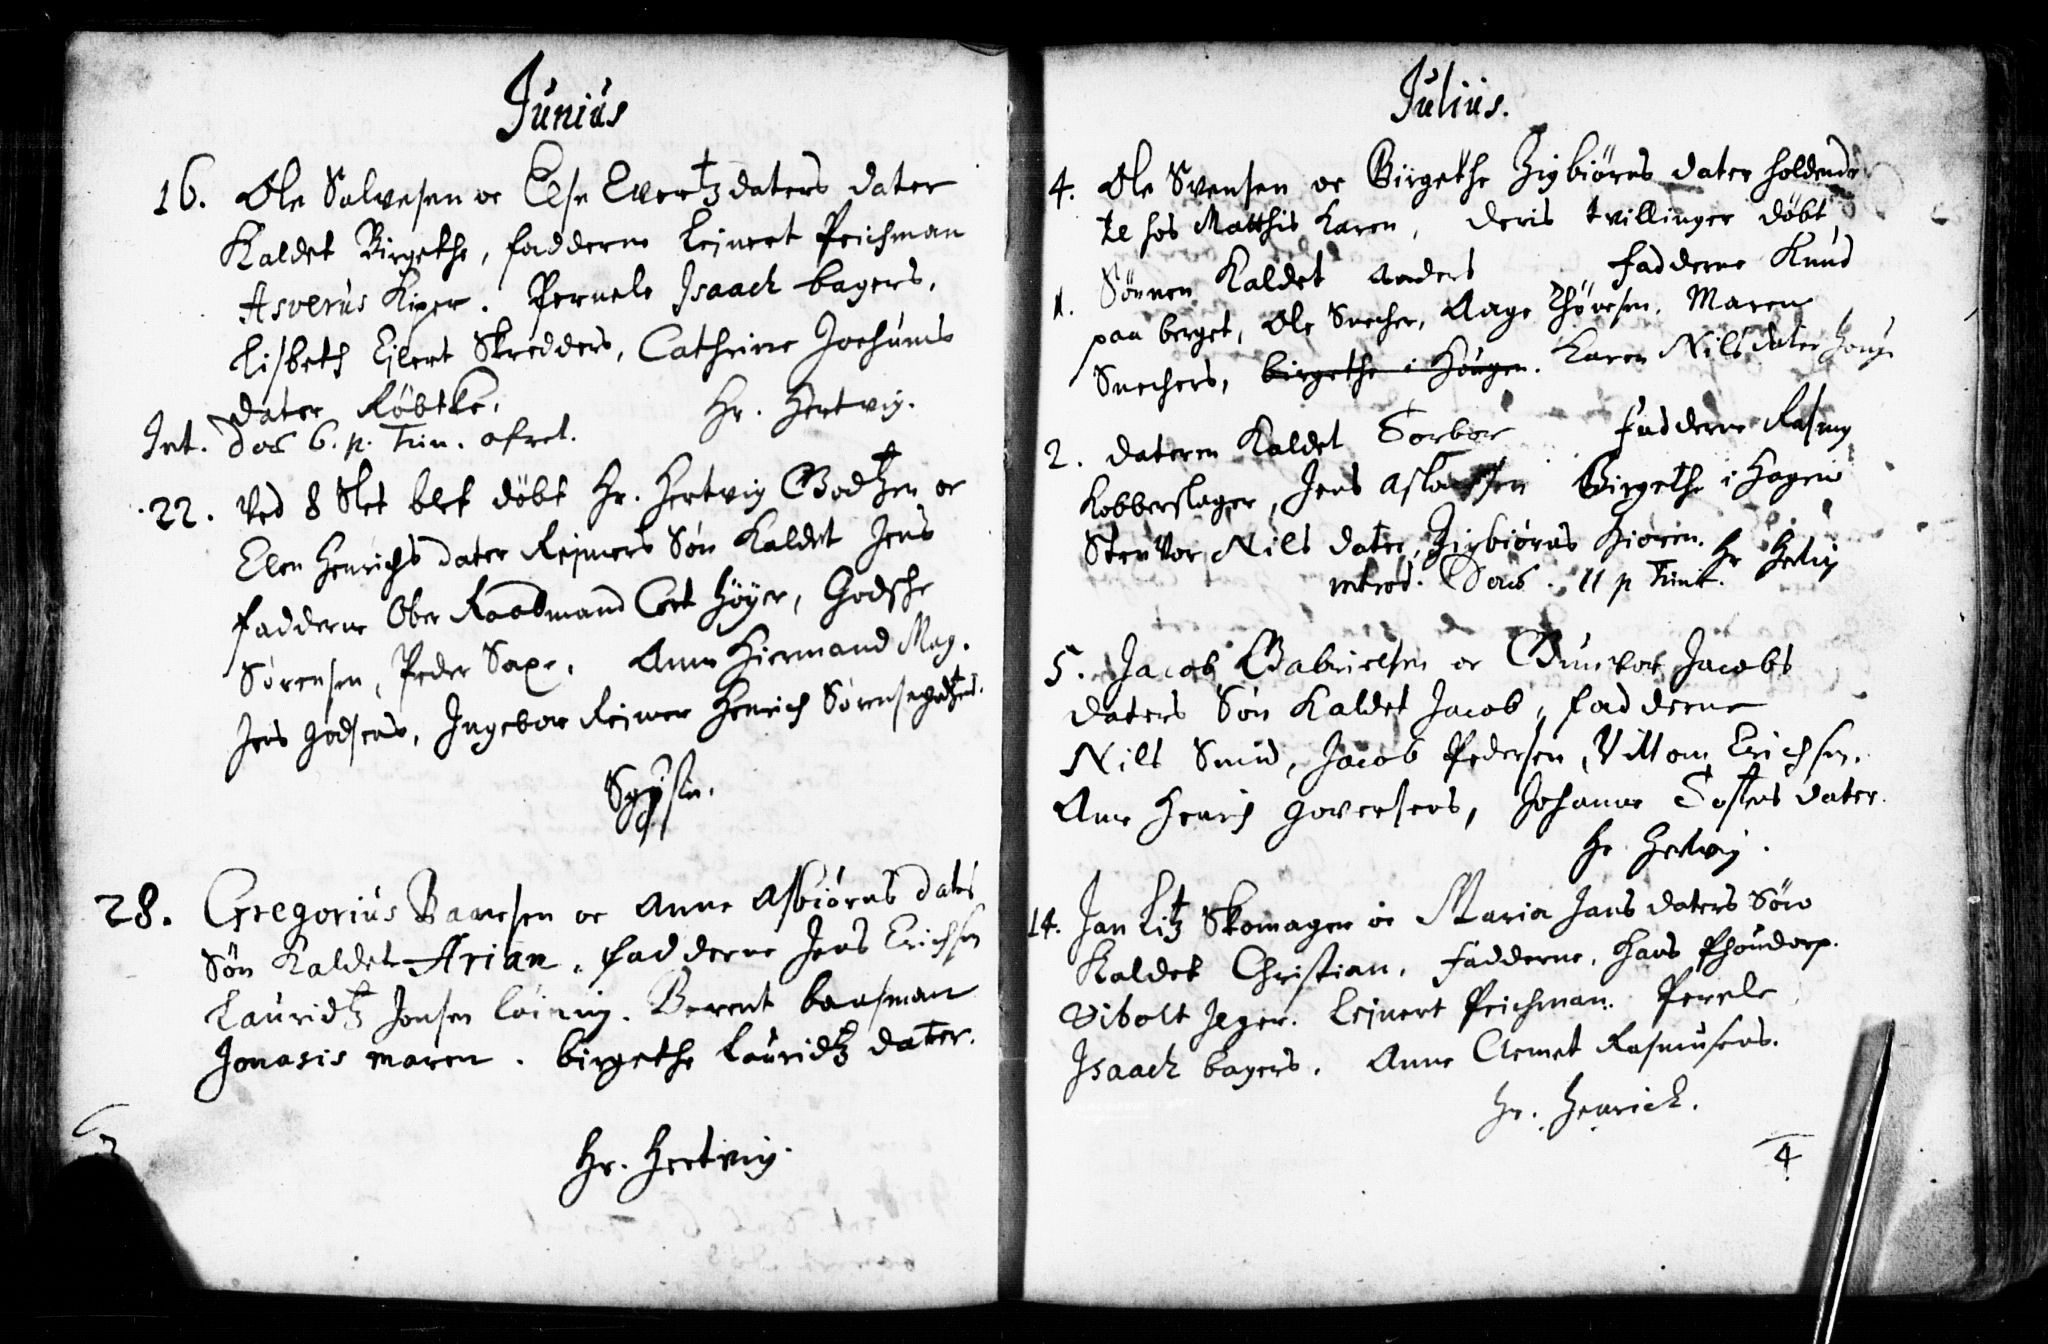 Junius
16. Ole Salvesen oc Else Evertz daters dater
Kaldet Birgethe, fadderne Lejnert Peichman
Asverus Kiper. Pernele Isaach bagers,
Lisbeth Ejlert Skredders, Cathrine Jochums
dater Røbtke. Hr. Hertvig.
Int. Dos 6. p. Trin. ofret.
22. Ved 8 Slet blef døbt Hr. Hertvig Godtzen oc
Elen Henrichs dater Rejmers Søn Kaldet Jens
fadderne Ober Raadmand Cort Høyer, Godsche
Sørensen, Peder Saxe. Anne Hiermand Mag.
Jens Godsens, Ingebor Rejmer Henrich Sørens
28. Gregorius Baaresen oc Anne Asbiørns daters
Søn Kaldet Arian, fadderne Jens Erichsen
Lauridtz Jonsen Berent baasman
Jonasis maren. birgethe Lauridtz dater.
Hr. Hertvig.
Julius.
4. Ole Svensen oc Birgethe Zigbiørns dater holdende
te hos Matthis Karen, deris tvillinger døbt
1. Sønnen Kaldet Anders fadderne Knud
paa berget, Ole Snecher, Aage Thøresen. Maren
Snechers, birgethe i Hougen. Karen Nils dater
2. dateren Kaldet Torbor fadderne Rasmus
Kobberslager, Jens Aslaessen Birgethe i Hagen
Stenvor Nils dater, Zigbiørns Hr Hertvig
introd. Dom. 11 p Trinit.
5. Jacob Gabrielsen oc Gunvor Jacobs
daters Søn Kaldet Jacob, fadderne
Nils Smid, Jacob Pedersen, Villom Erichsen.
Anne Henrich Goversens, Johanne Tostens dater.
Hr. Hertvig.
14. Jan Litz Skomager oc Maria Jans daters Søn
Kaldet Christian, fadderne, Hans
Vibolt Jeger. Lejnert Peichman. Pernele
Isaach bagers. Anne Clemet Rasmusens.
Hr. Henrich.
4